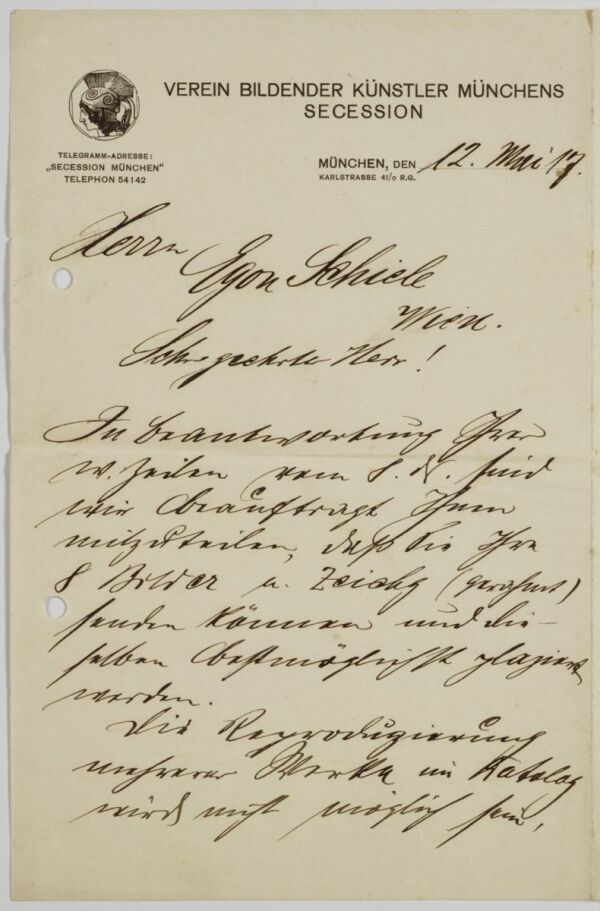 VEREIN BILDENDER KÜNSTLER MÜNCHENS
SECESSION
TELEGRAMM-ADRESSE:
„SECESSION MÜNCHEN“
TELEPHON 54142
MÜNCHEN, DEN 12. Mai 17.
KARLSTRASSE 41/0 R.G.
Herrn
Egon Schiele
Wien.
Sehr geehrter Herr!
In Beantwortung Ihrer
w. Zeilen vom 8. ds. sind
wir beauftragt Ihnen
mitzuteilen, daß Sie Ihre
8 Bilder u. Zeichg (gerahmt)
senden können und die-
selben bestmöglichst plaziert
werden.
Die Reproduzierung
mehrerer Werke im Katalog
wird nicht möglich sein,